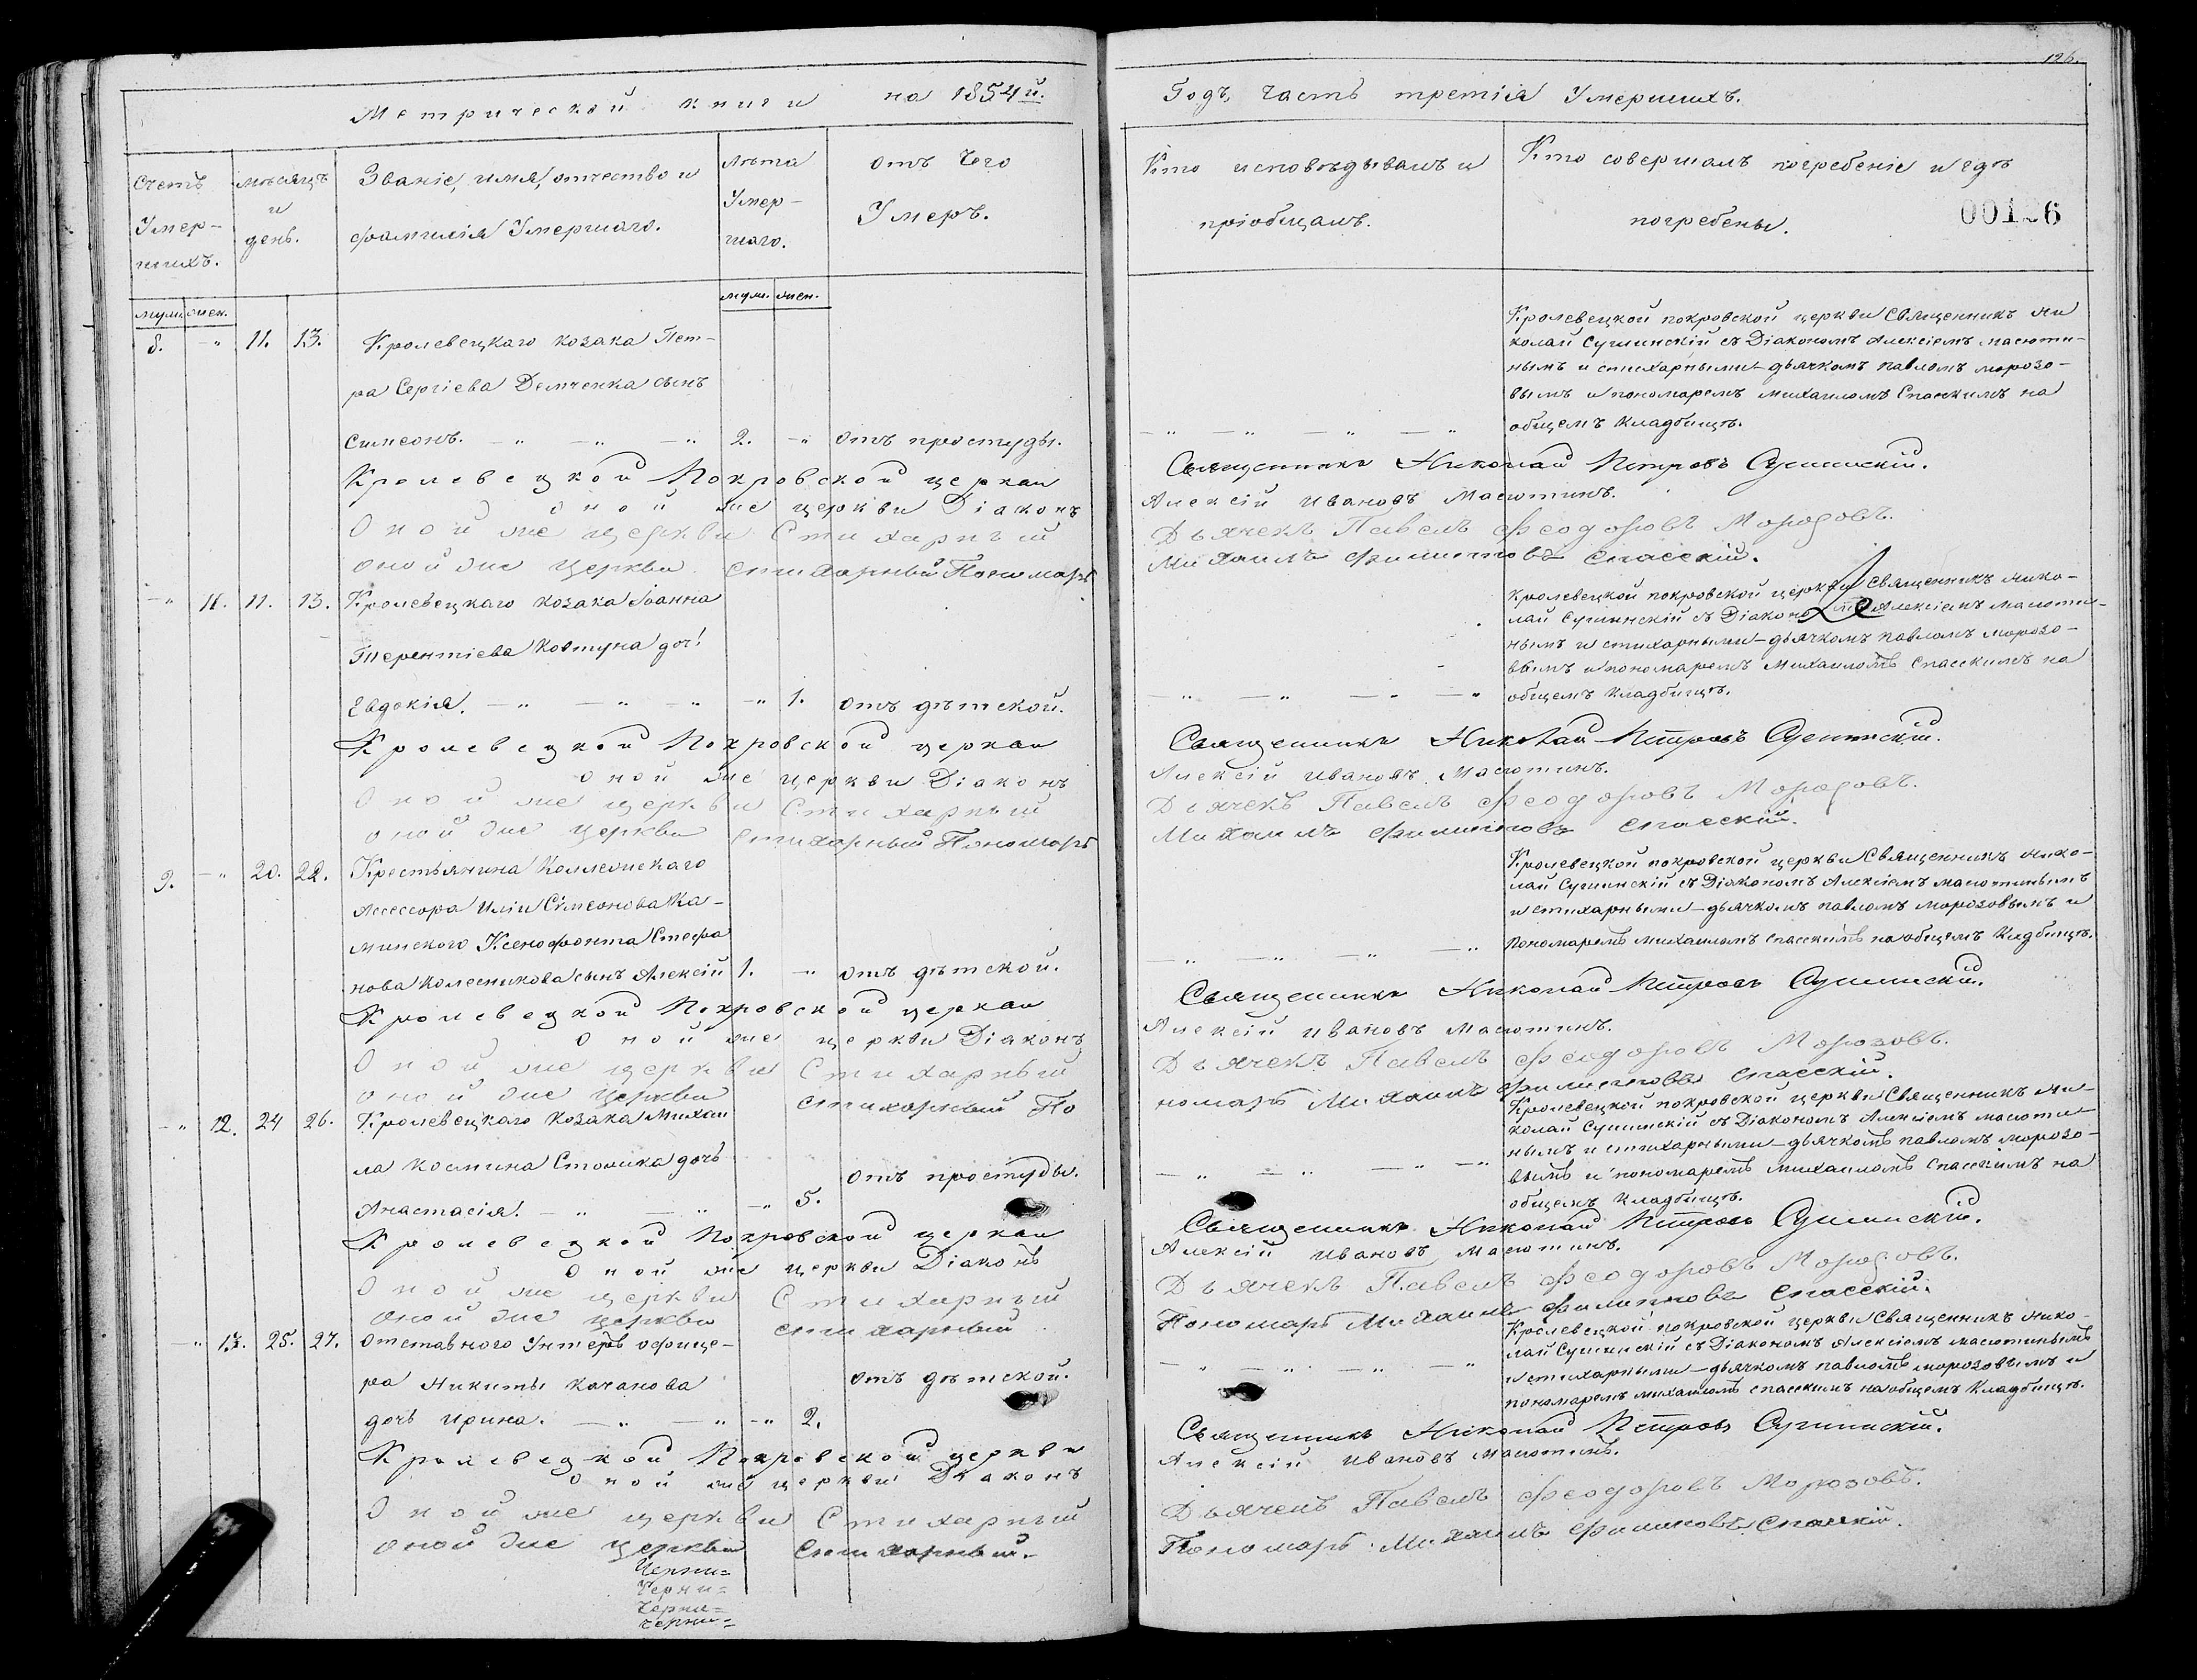 Метрической книги на 1854й.
Счетъ Умер-шихъ.
мѣсяцъ и день.
Званіе, имя, отчество и фамилія Умершаго.
лѣта Умер-шаго.
отъ чего Умеръ.
муж. жен.
муж. жен.
8. -„ 11. 13. Кролевецкаго козака Пет-
ра Сергіева Демченка сынъ
Симеонъ. -„ -„ -„ 2. -„ отъ простуды.
Кролевецкой Покровской церкви
оной же церкви Діаконъ
Оной же церкви Стихарный
оной же церкви стихарный Пономарь
-„ 11. 11. 13. Кролевецкаго козака Іоанна
Терентіева Ковтуна доч!
Евдокія. -„ -„ -„ -„ 1. отъ дѣтской.
Кролевецкой Покровской церкви
оной же церкви Діаконъ
Оной же церкви Стихарный
оной же церкви стихарный Пономарь
9. -„ 20. 22. Крестьянина Коллежскаго
Ассессора Иліи Сѵмеонова Ка-
минского Ксенофонта Стефа
нова Колесникова сынъ Алексій 1. -„ отъ дѣтской.
Кролевецкой Покровской церкви
оной же церкви Діаконъ
Оной же церкви Стихарный
оной же церкви стихарный По
-„ 12. 24 26. Кролевецкаго козака Михаи
ла Космина Столика дочь
отъ простуды.
Анастасія. -„ -„ -„ 5.
Кролевецкой Покровской церкви
оной же церкви Діаконъ
Оной же церкви Стихарный
оной же церкви стихарный
-„ 13. 25. 27. Отставного Унтеръ офице-
ра Никиты Качанова отъ дѣтской.
дочь Ирина. -„ -„ -„ 2.
Кролевецкой Покровской церкви
оной же церкви Діаконъ
Оной же церкви Стихарный
оной же церкви Стихарный.
Черни=
Черни=
Черни=
черни=
126.
Годъ, часть третія Умершихъ.
Кто исповѣдывалъ и пріобщалъ.
Кто совершалъ погребеніе и гдѣ погребены.
00126
Кролевецкой покровской церкви Священникъ Ни
колай Сушинскій съ Діакономъ Алексіемъ Масюти-
нымъ и стихарными - дьячкомъ павломъ морозо-
вымъ и пономаремъ михаиломъ Спасскимъ на
-„ -„ -„ -„ общемъ кладбищѣ.
Священникъ Николай Петровъ Сушинскій.
Алексій Ивановъ Масютинъ.
Дьячекъ Павелъ Феодоровъ Морозовъ.
Михаилъ Филиповъ Спасскій.
Кролевецкой покровской церкви Священникъ Нико-
лай Сушинскій съ Діакономъ Алексіемъ Масюти-
нымъ и стихарными - дьячкомъ павломъ морозо-
вымъ и пономаремъ Михаиломъ Спасскимъ на
-„ -„ -„ -„ общемъ кладбищѣ.
Священникъ Николай Петровъ Сушинскій.
Алексій Ивановъ Масютинъ.
Дьячекъ Павелъ Феодоровъ Морозовъ.
Михаилъ Филиповъ Спасскій.
Кролевецкой покровской церкви Священникъ Нико-
лай Сушинскій съ Діякономъ Алексіемъ масютинымъ
и стихарными - дьячкомъ павломъ морозовымъ и
-„ -„ -„ -„ пономаремъ михаиломъ спасскимъ на общемъ кладбищѣ.
Священникъ Николай Петровъ Сушинскій.
Алексій Ивановъ Масютинъ.
Дьячекъ Павелъ Феодоровъ Морозовъ.
номарь Михаилъ Филиповъ Спасскій.
Кролевецкой покровской церкви Священникъ Ни-
колай Сушинскій съ Діакономъ Алексіемъ масюти
нымъ и стихарными - дьячкомъ павломъ морозо-
-„ -„ -„ -„ вымъ и пономаремъ михаиломъ Спасскимъ на
общемъ кладбищѣ.
Священникъ Николай Петровъ Сушинскій.
Алексій Ивановъ Масютинъ.
Дьячекъ Павелъ Феодоровъ Морозовъ.
Пономарь Михаилъ Филиповъ Спасскій.
Кролевецкой покровской церкви Священникъ Нико
-„ -„ -„ -„ лай Сушинскій съ Діакономъ Алексіемъ масютинымъ
и стихарными - дьячкомъ павломъ морозовымъ и
пономаремъ михаиломъ спасскимъ на общемъ кладбищѣ.
Священникъ Николай Петровъ Сушинскій.
Алексій Ивановъ Масютинъ.
Дьячекъ Павелъ Феодоровъ Морозовъ.
Пономарь Михаилъ Филиповъ Спасскій.